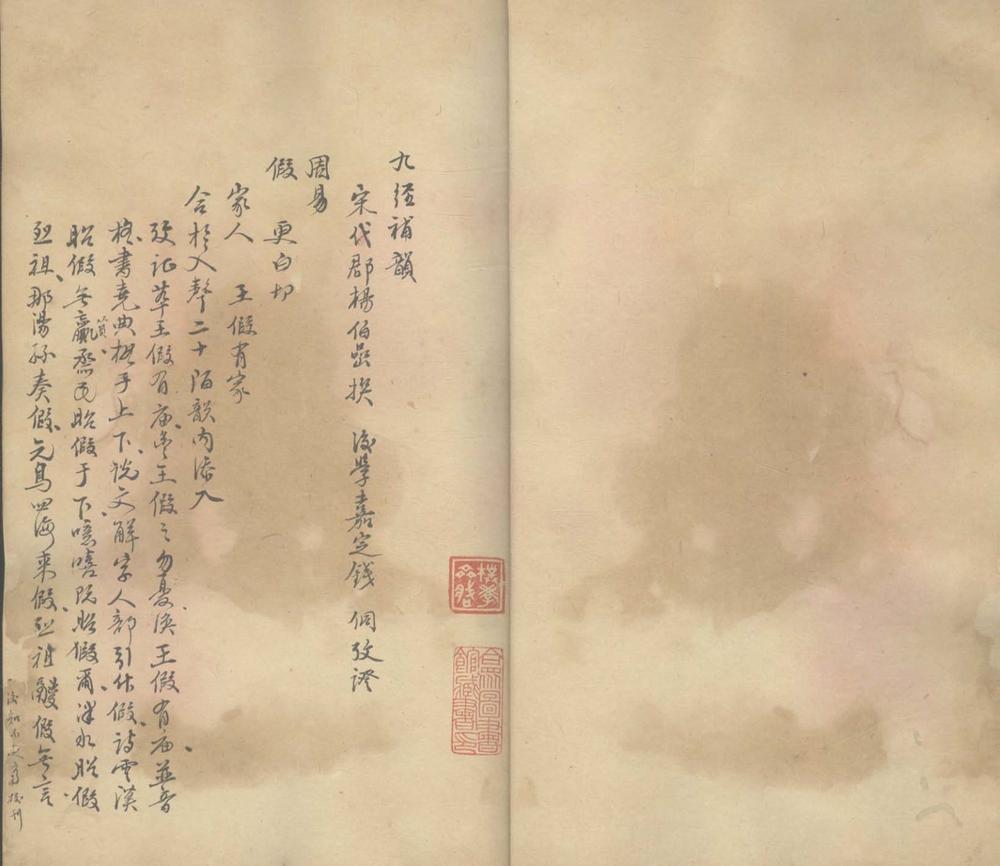 九经補韻
宋代郡楊伯嵒撰　後學嘉定錢侗攷證
周易
假　更白切
家人　王假有家
合於入聲二十陌韻內添入
攷證萃王假有庙丰王假之勿憂渙王假有庙並音
格書堯典格于上下说文解字人部引作假詩雲漢
昭假無贏箋烝民昭假于下噫嘻既昭假爾泮水昭假
烈祖那湯孫奏假元鳥四海来假烈祖鬷假無言
後知不足齋校刊
圖書
館藏書